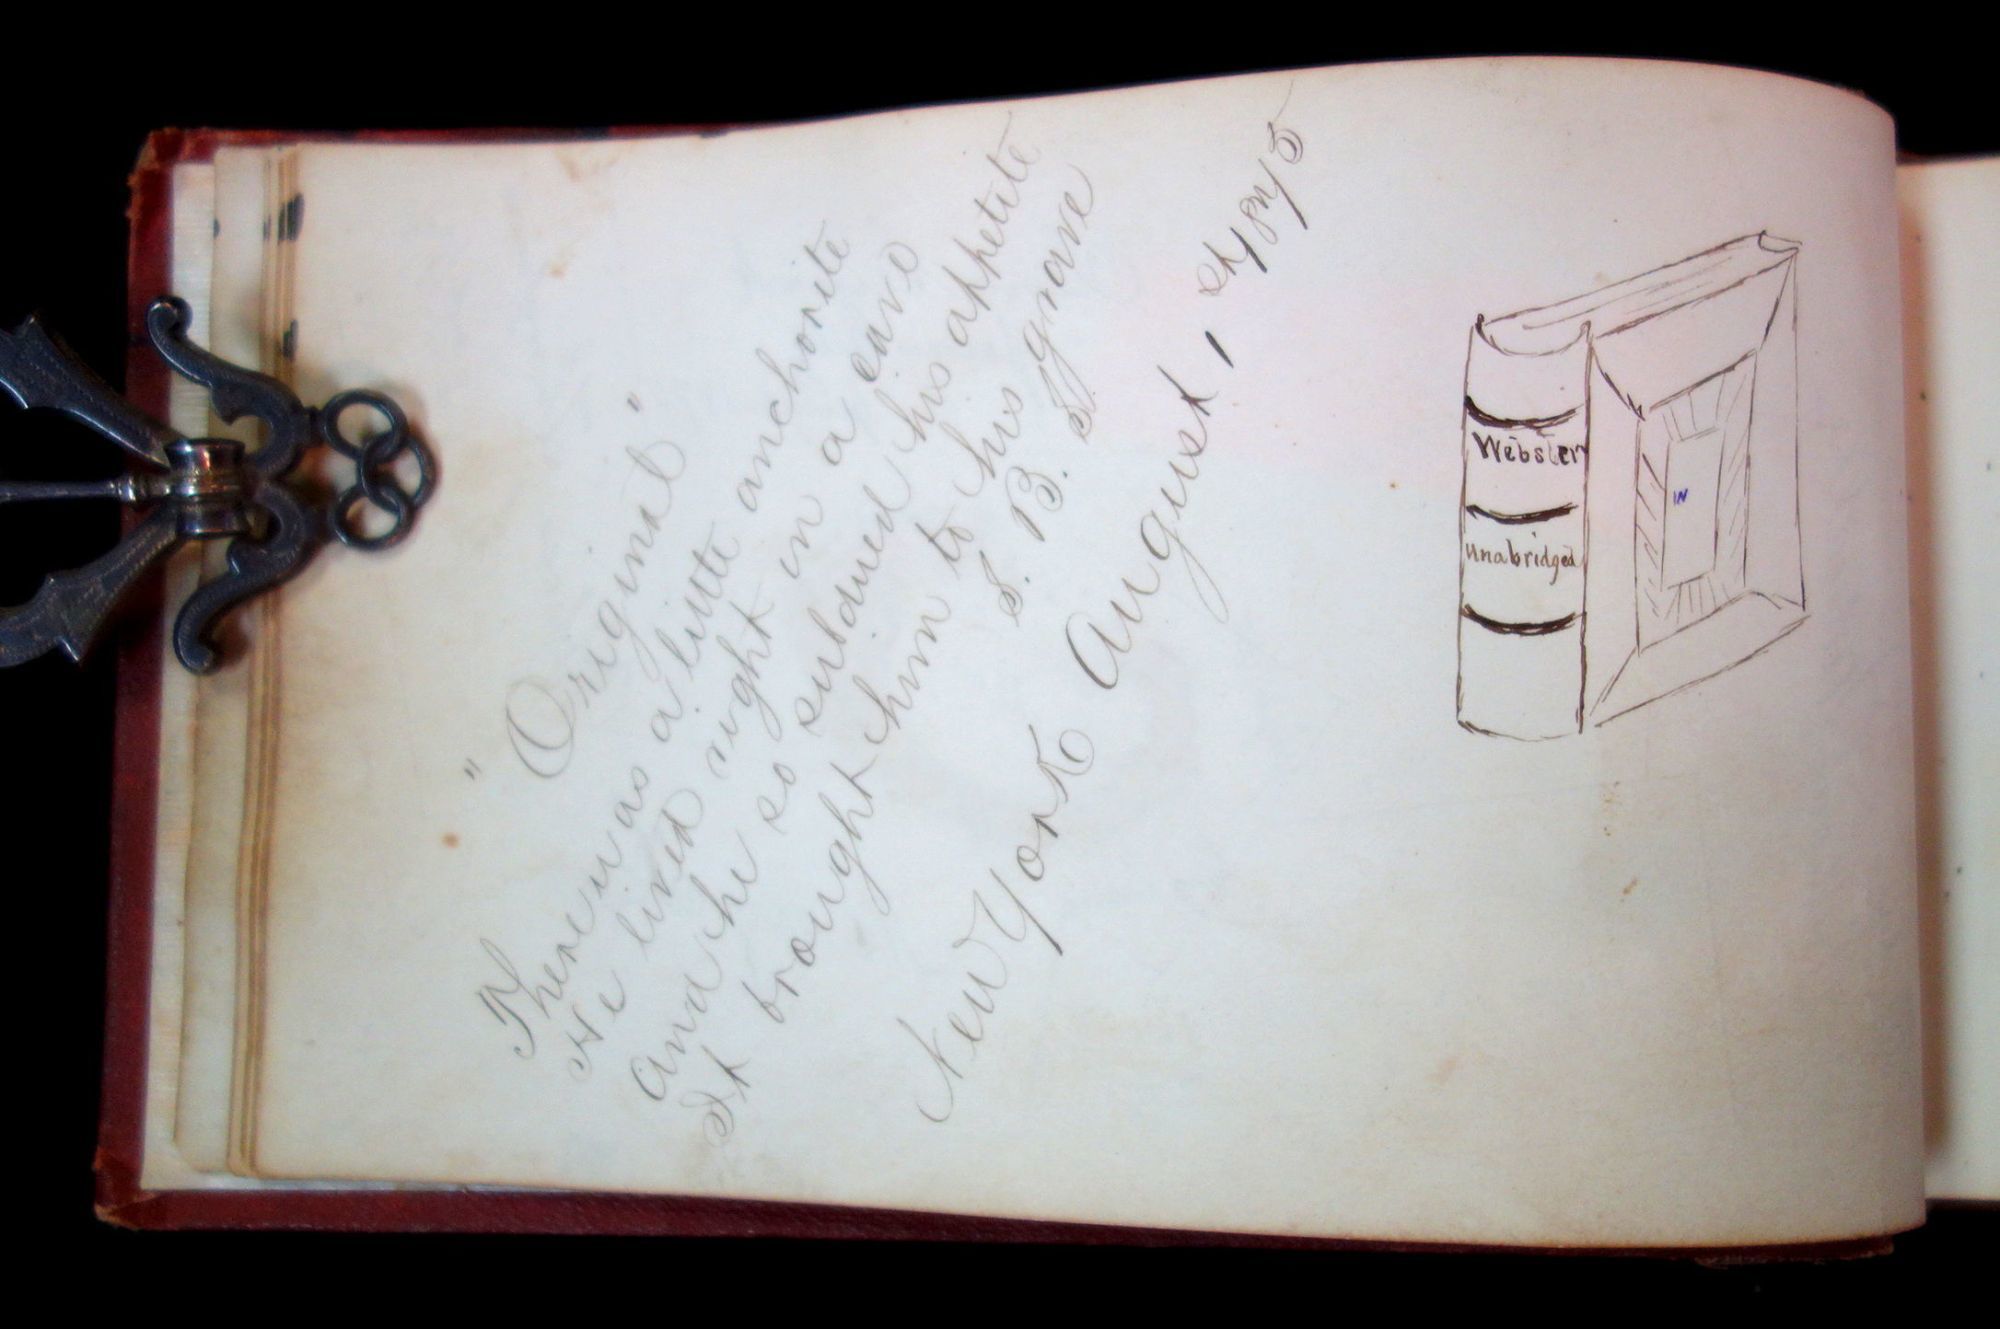 " Original "
There was a little anchorite
He lived right in a cave
And he so subdued his appetite
It brought him to his grave
S. B. S.
New York August,
Webster
Unabridged
IN